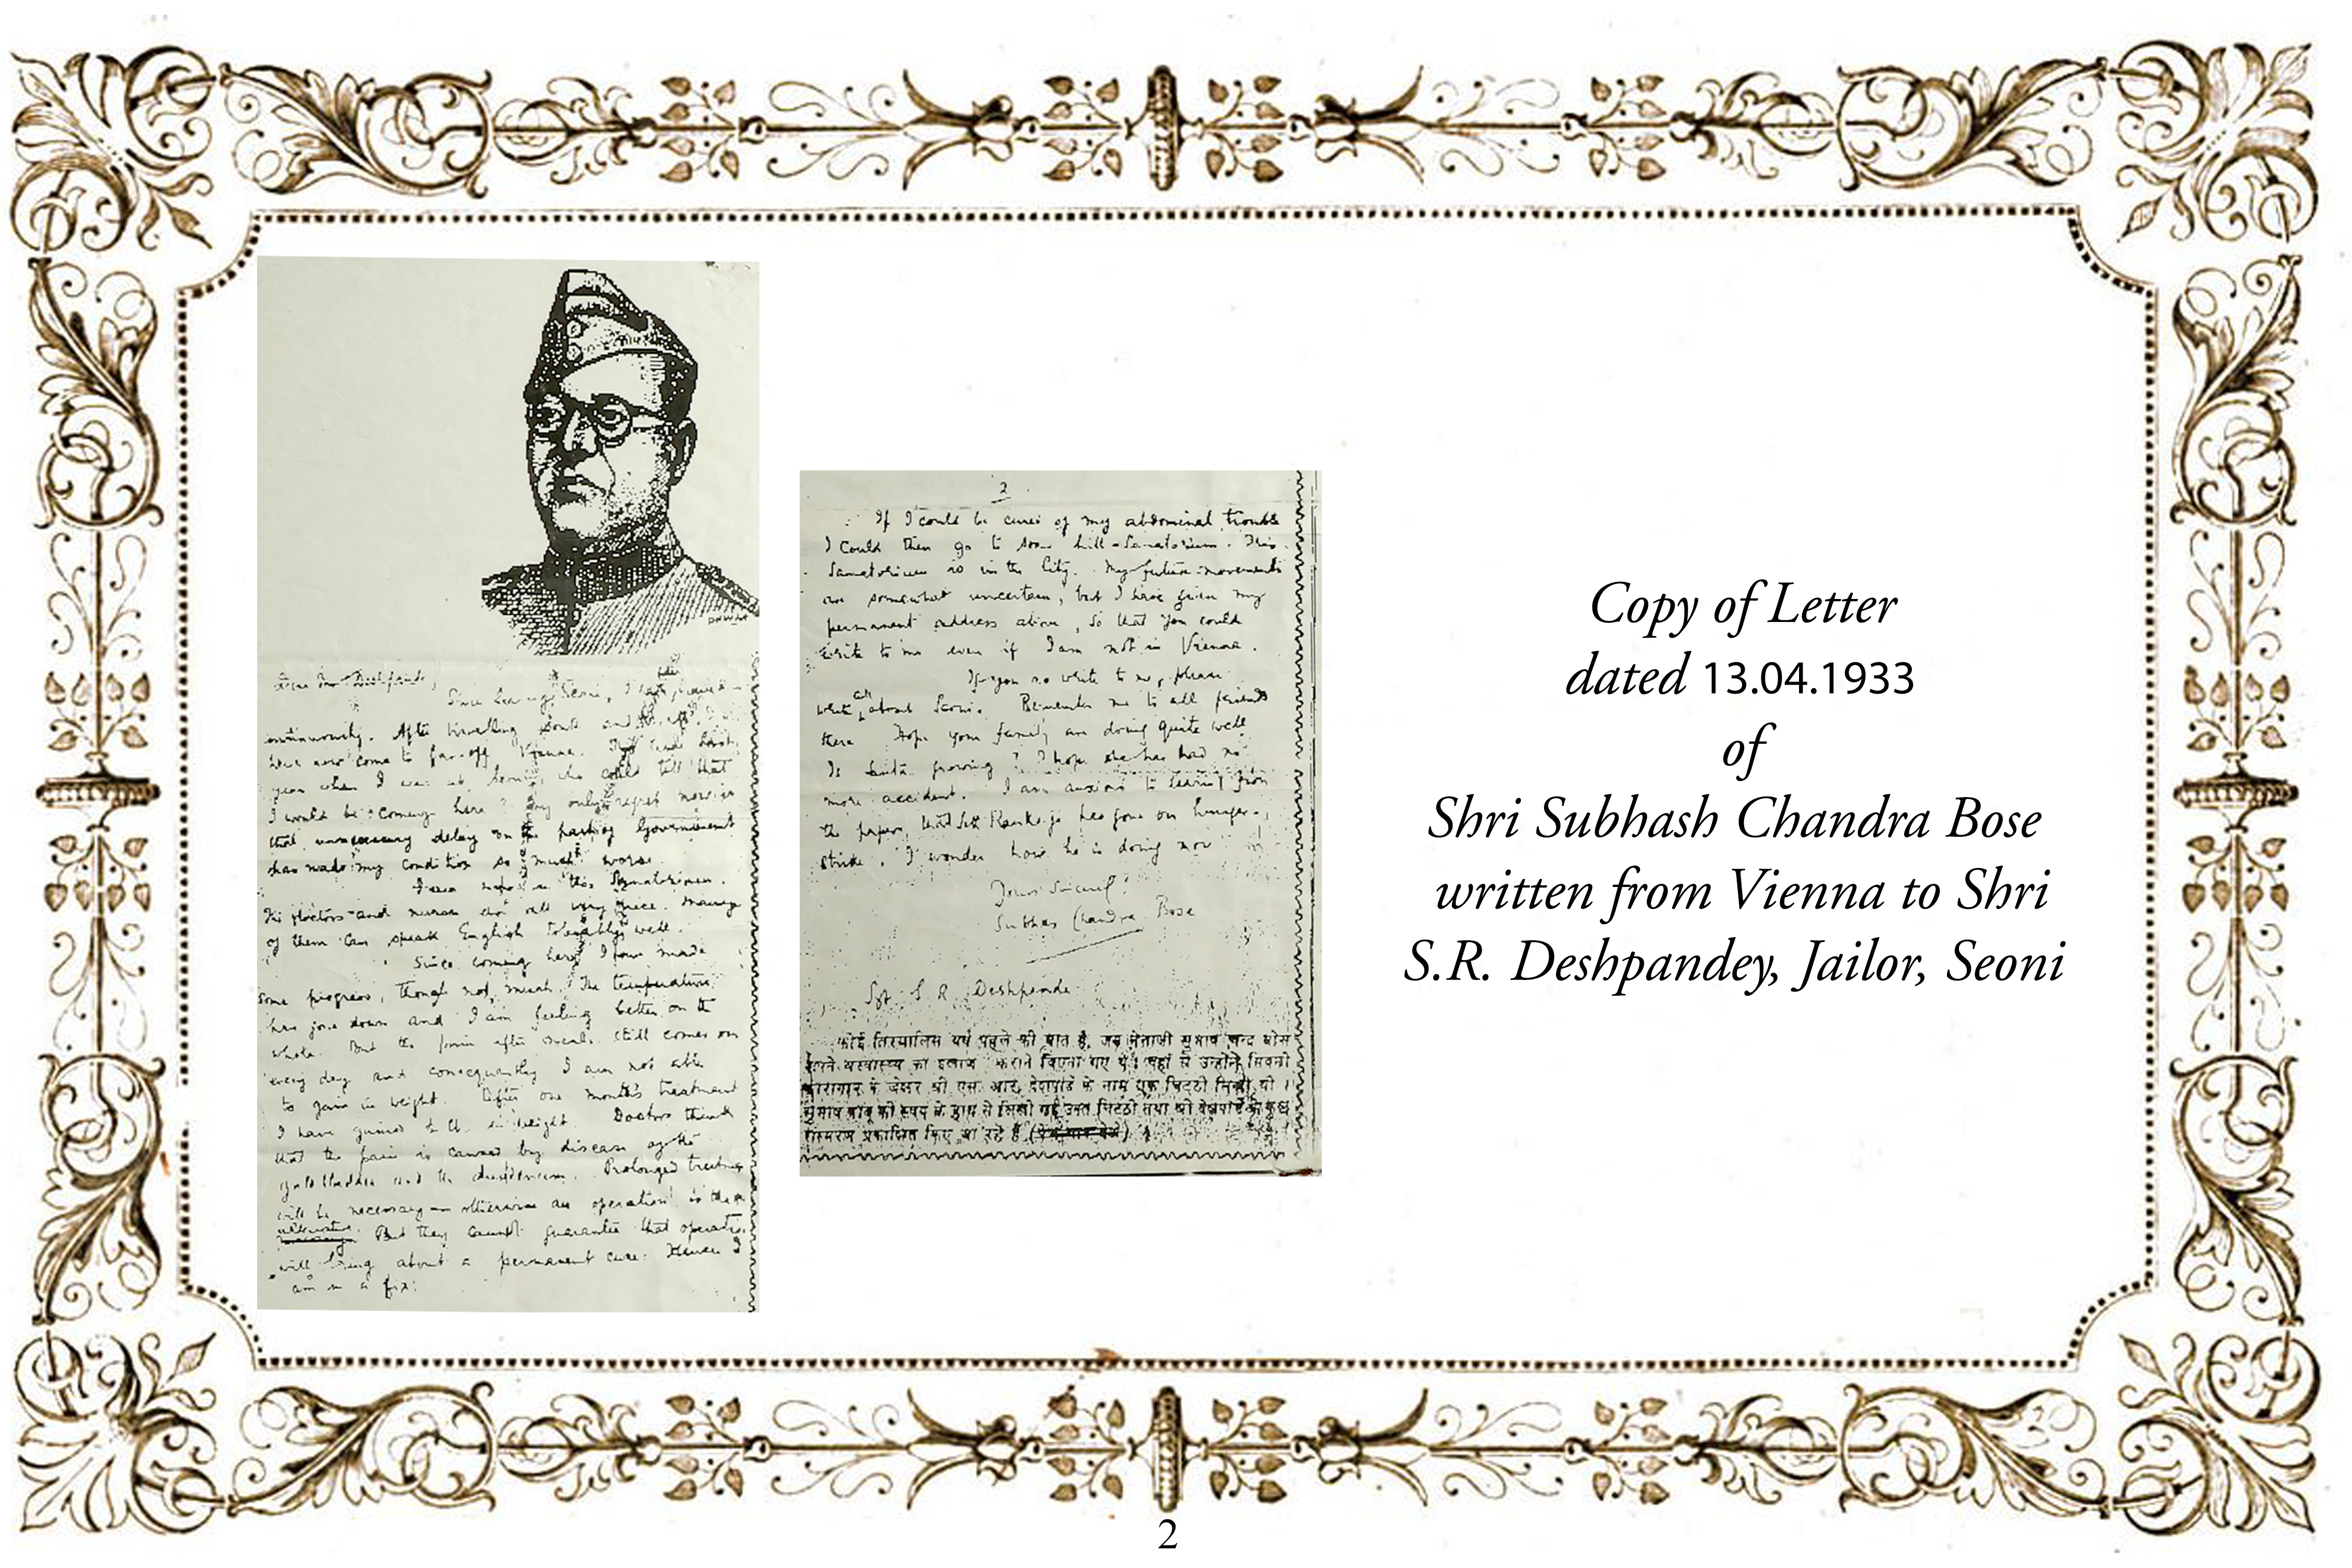 Dear Mr Deshpande,
Since leaving Seoni, I have been
continuously. After travelling and
have now come to far-off Vienna. last
year when I was at Seoni, who could tell that
I would be coming here? My only regret now is
that unnecessary delay on the part of Government
has made my condition so much worse.
I am now in this Sanatorium.
The doctors and nurses are all very nice. Many
of them can speak English tolerably well.
Since coming here I have made
some progress, though not much. The temperature
has gone down and I am feeling better on the
whole. But the pain after meals still comes on
every day and consequently I am not able
to gain in weight. After one month's treatment
I have gained lb in weight. Doctors think
that the pain is caused by disease of the
gall bladder and the duodenum. Prolonged treatment
will be necessary — otherwise an operation is the
alternative. But they cannot guarantee that operation
will bring about a permanent cure. Hence I
am in a fix.
2
If I could be cured of my abdominal trouble
I could then go to some hill-Sanatorium. This
Sanatorium is in the City. My future movements
are somewhat uncertain, but I have given my
permanent address above, so that you could
write to me even if I am not in Vienna.
If you so write to me, please
write all about Seoni. Remember me to all friends
there. Hope your family are doing quite well
Is growing? I hope she has had no
more accident. I am anxious to learn from
the paper, that Sett has gone on hunger-
strike. I wonder how he is doing now
Yours Sincerely
Subhas Chandra Bose
Sjt. S R Deshpande
कोई तिरयालिस वर्ष पहले की बात है, जब नेताजी सुभाष चन्द्र बोस
अपने अस्वास्थ्य का इलाज कराने विएना गए थे। वहां से उन्होंने सिवनी
कारागार के जेलर श्री एस. आर. देशपांडे के नाम एक चिट्ठी लिखी थी।
सुभाष बाबू की स्वयं के हाथ से लिखी गई उक्त चिट्ठी तथा श्री देशपांडे के कुछ
संस्मरण प्रकाशित किए जा रहे हैं
Copy of Letter
dated 13.04.1933
of
Shri Subhash Chandra Bose
written from Vienna to Shri
S.R. Deshpandey, Jailor, Seoni
2